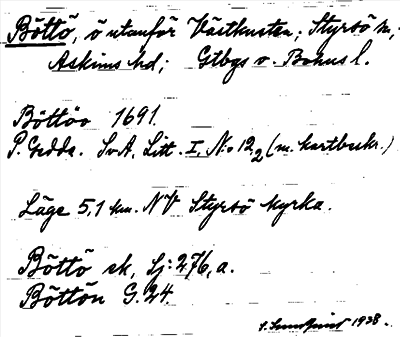 Böttö, ö utanför Västkusten; Styrsö sn,
Askims hd; Gtbgs o. Bohus l.
Böttöo 1691.
P. Gedda. SvA, Litt. I, No 12,2 (m. kartbeskr.)
Läge 5,1 km. NV Styrsö kyrka.
Böttö sk, Sj: 276, a.
Böttön G. 24.
S. Sundquist 1938.